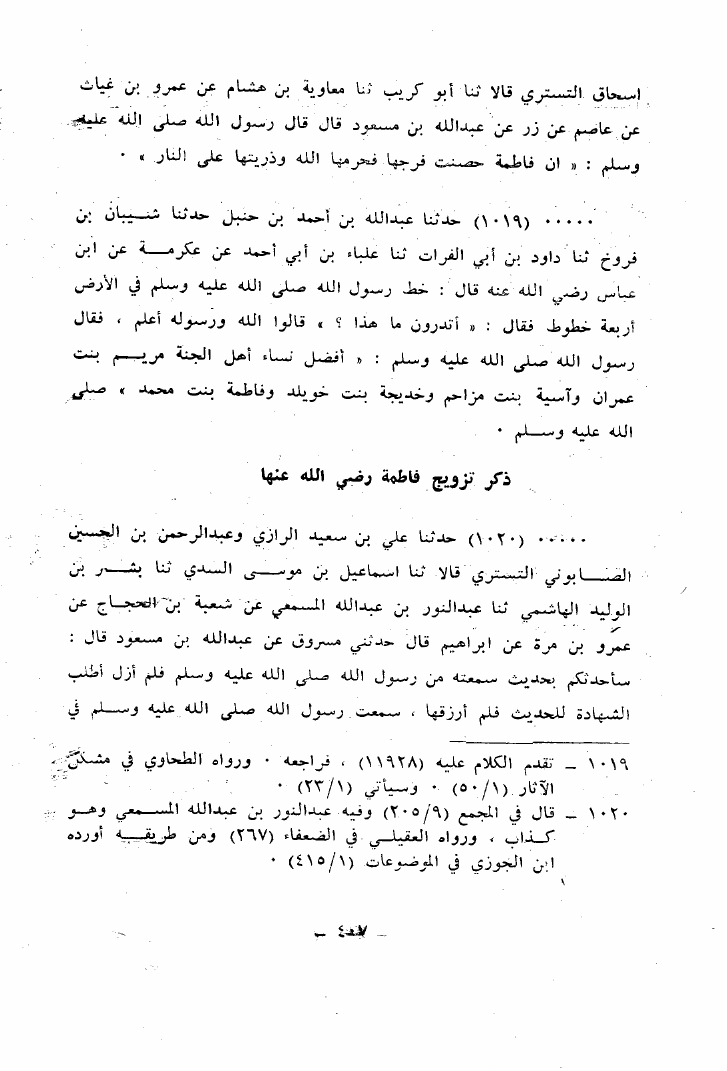 اسحاق التستري قالا ثنا أبو كريب ثنا معاوية بن هشام عن عمرو بن غياث
عن عاصم عن زر عن عبدالله بن مسعود قال قال رسول الله صلى الله عليه
وسلم : « ان فاطمة حصنت فرجها فحرمها الله وذريتها على النار » ٠
٠٠٠٠٠ (١٠١٩) حدثنا عبدالله بن أحمد بن حنبل حدثنا شيبان بن
فروخ ثنا داود بن أبي الفرات ثنا علباء بن أبي أحمد عن عكرمة عن ابن
عباس رضي الله عنه قال : خط رسول الله صلى الله عليه وسلم في الأرض
أربعة خطوط فقال : « أتدرون ما هذا ؟ » قالوا الله ورسوله أعلم ، فقال
رسول الله صلى الله عليه وسلم : « أفضل نساء أهل الجنة مريم بنت
عمران وآسية بنت مزاحم وخديجة بنت خويلد وفاطمة بنت محمد » صلى
الله عليه وسلم ٠
ذكر تزويج فاطمة رضي الله عنها
٠٠٠٠٠ (١٠٢٠) حدثنا علي بن سعيد الرازي وعبدالرحمن بن الحسين
الصابوني التستري قالا ثنا اسماعيل بن موسى السدي ثنا بشر بن
الوليد الهاشمي ثنا عبدالنور بن عبدالله المسمعي عن شعبة بن الحجاج عن
عمرو بن مرة عن ابراهيم قال حدثني مسروق عن عبدالله بن مسعود قال :
سأحدثكم بحديث سمعته من رسول الله صلى الله عليه وسلم فلم أزل أطلب
الشهادة للحديث فلم أرزقها ، سمعت رسول الله صلى الله عليه وسلم في
١٠١٩ ــ تقدم الكلام عليه (١١٩٢٨) ، فراجعه ٠ ورواه الطحاوي في مشكل
الآثار (٥٠/١) ٠ وسيأتي (٢٣/١) ٠
١٠٢٠ ــ قال في المجمع (٢٠٥/٩) وفيه عبدالنور بن عبدالله المسمعي وهو
كذاب ، ورواه العقيلي في الضعفاء (٢٦٧) ومن طريقه أورده
ابن الجوزي في الموضوعات (٤١٥/١) ٠